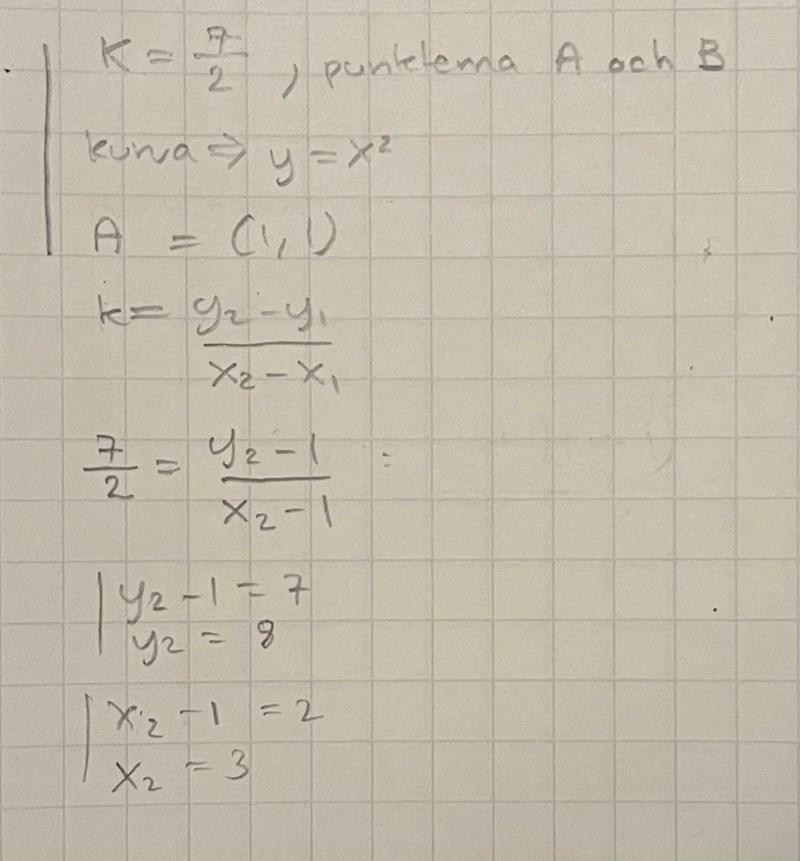 K = 7/2 , punkterna A och B
kurva ⇒ y = x²
A = (1,1)
k = y₂ - y₁ / x₂ - x₁
7/2 = y₂ - 1 / x₂ - 1 :
y₂ - 1 = 7
y₂ = 8
x₂ - 1 = 2
x₂ = 3